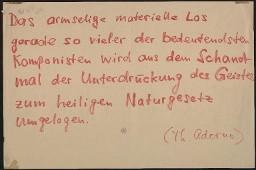 Das armselige materielle Los
gerade so vieler der bedeutendsten
Komponisten wird aus dem Schand
mal der Unterdrückung des Geistes
zum heiligen Naturgesetz
umgelogen.
(Th. Adorno)